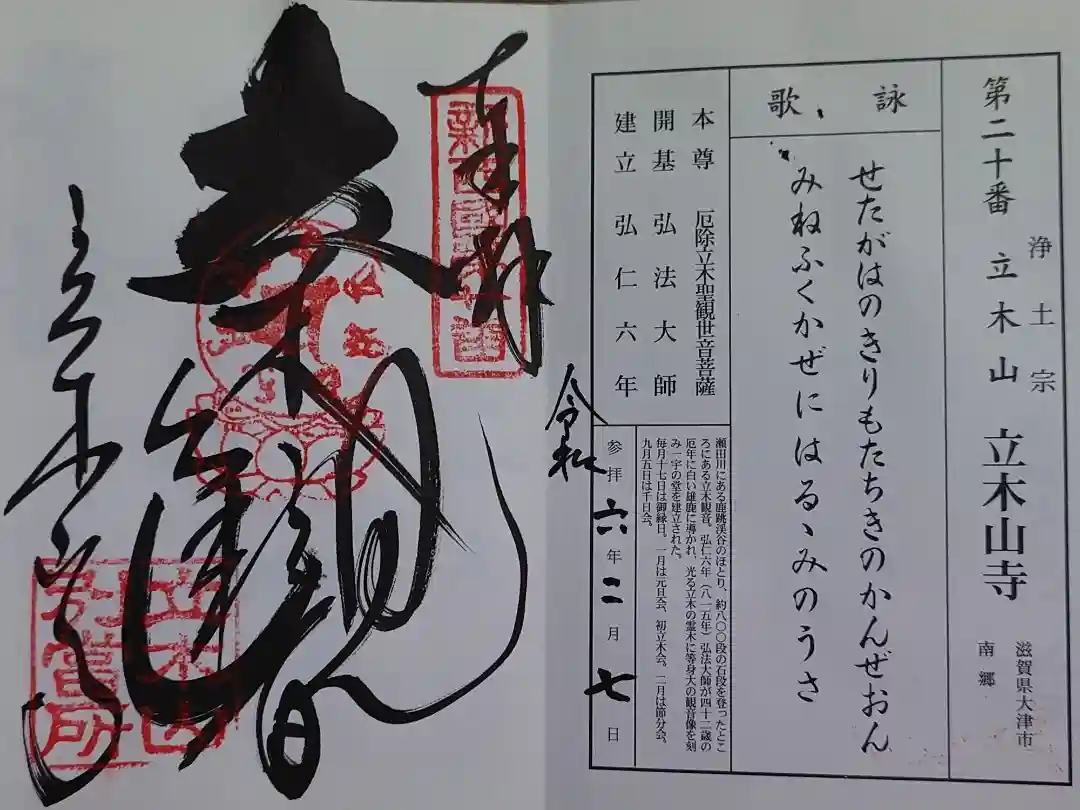 第二十番 立木山 立木山寺
浄土宗
滋賀県大津市
南郷
詠歌
せたがはのきりもたちきのかんぜおん
みねふくかぜにはるゝみのうさ
本尊 厄除立木聖観世音菩薩
開基 弘法大師
建立 弘仁六年
瀬田川にある鹿跳渓谷のほとり、約八〇〇段の石段を登ったとこ
ろにある立木観音。弘仁六年(八一五年)弘法大師が四十二歳の
厄年に白い雄鹿に導かれ、光る立木の霊木に等身大の観音像を刻
み一宇の堂を建立された。
毎月十七日は御縁日。一月は元旦会、初立木会。二月は節分会、
九月五日は千日会。
令和
参拝 六年二月七日
奉拝
立木観音
立木山寺
立木山